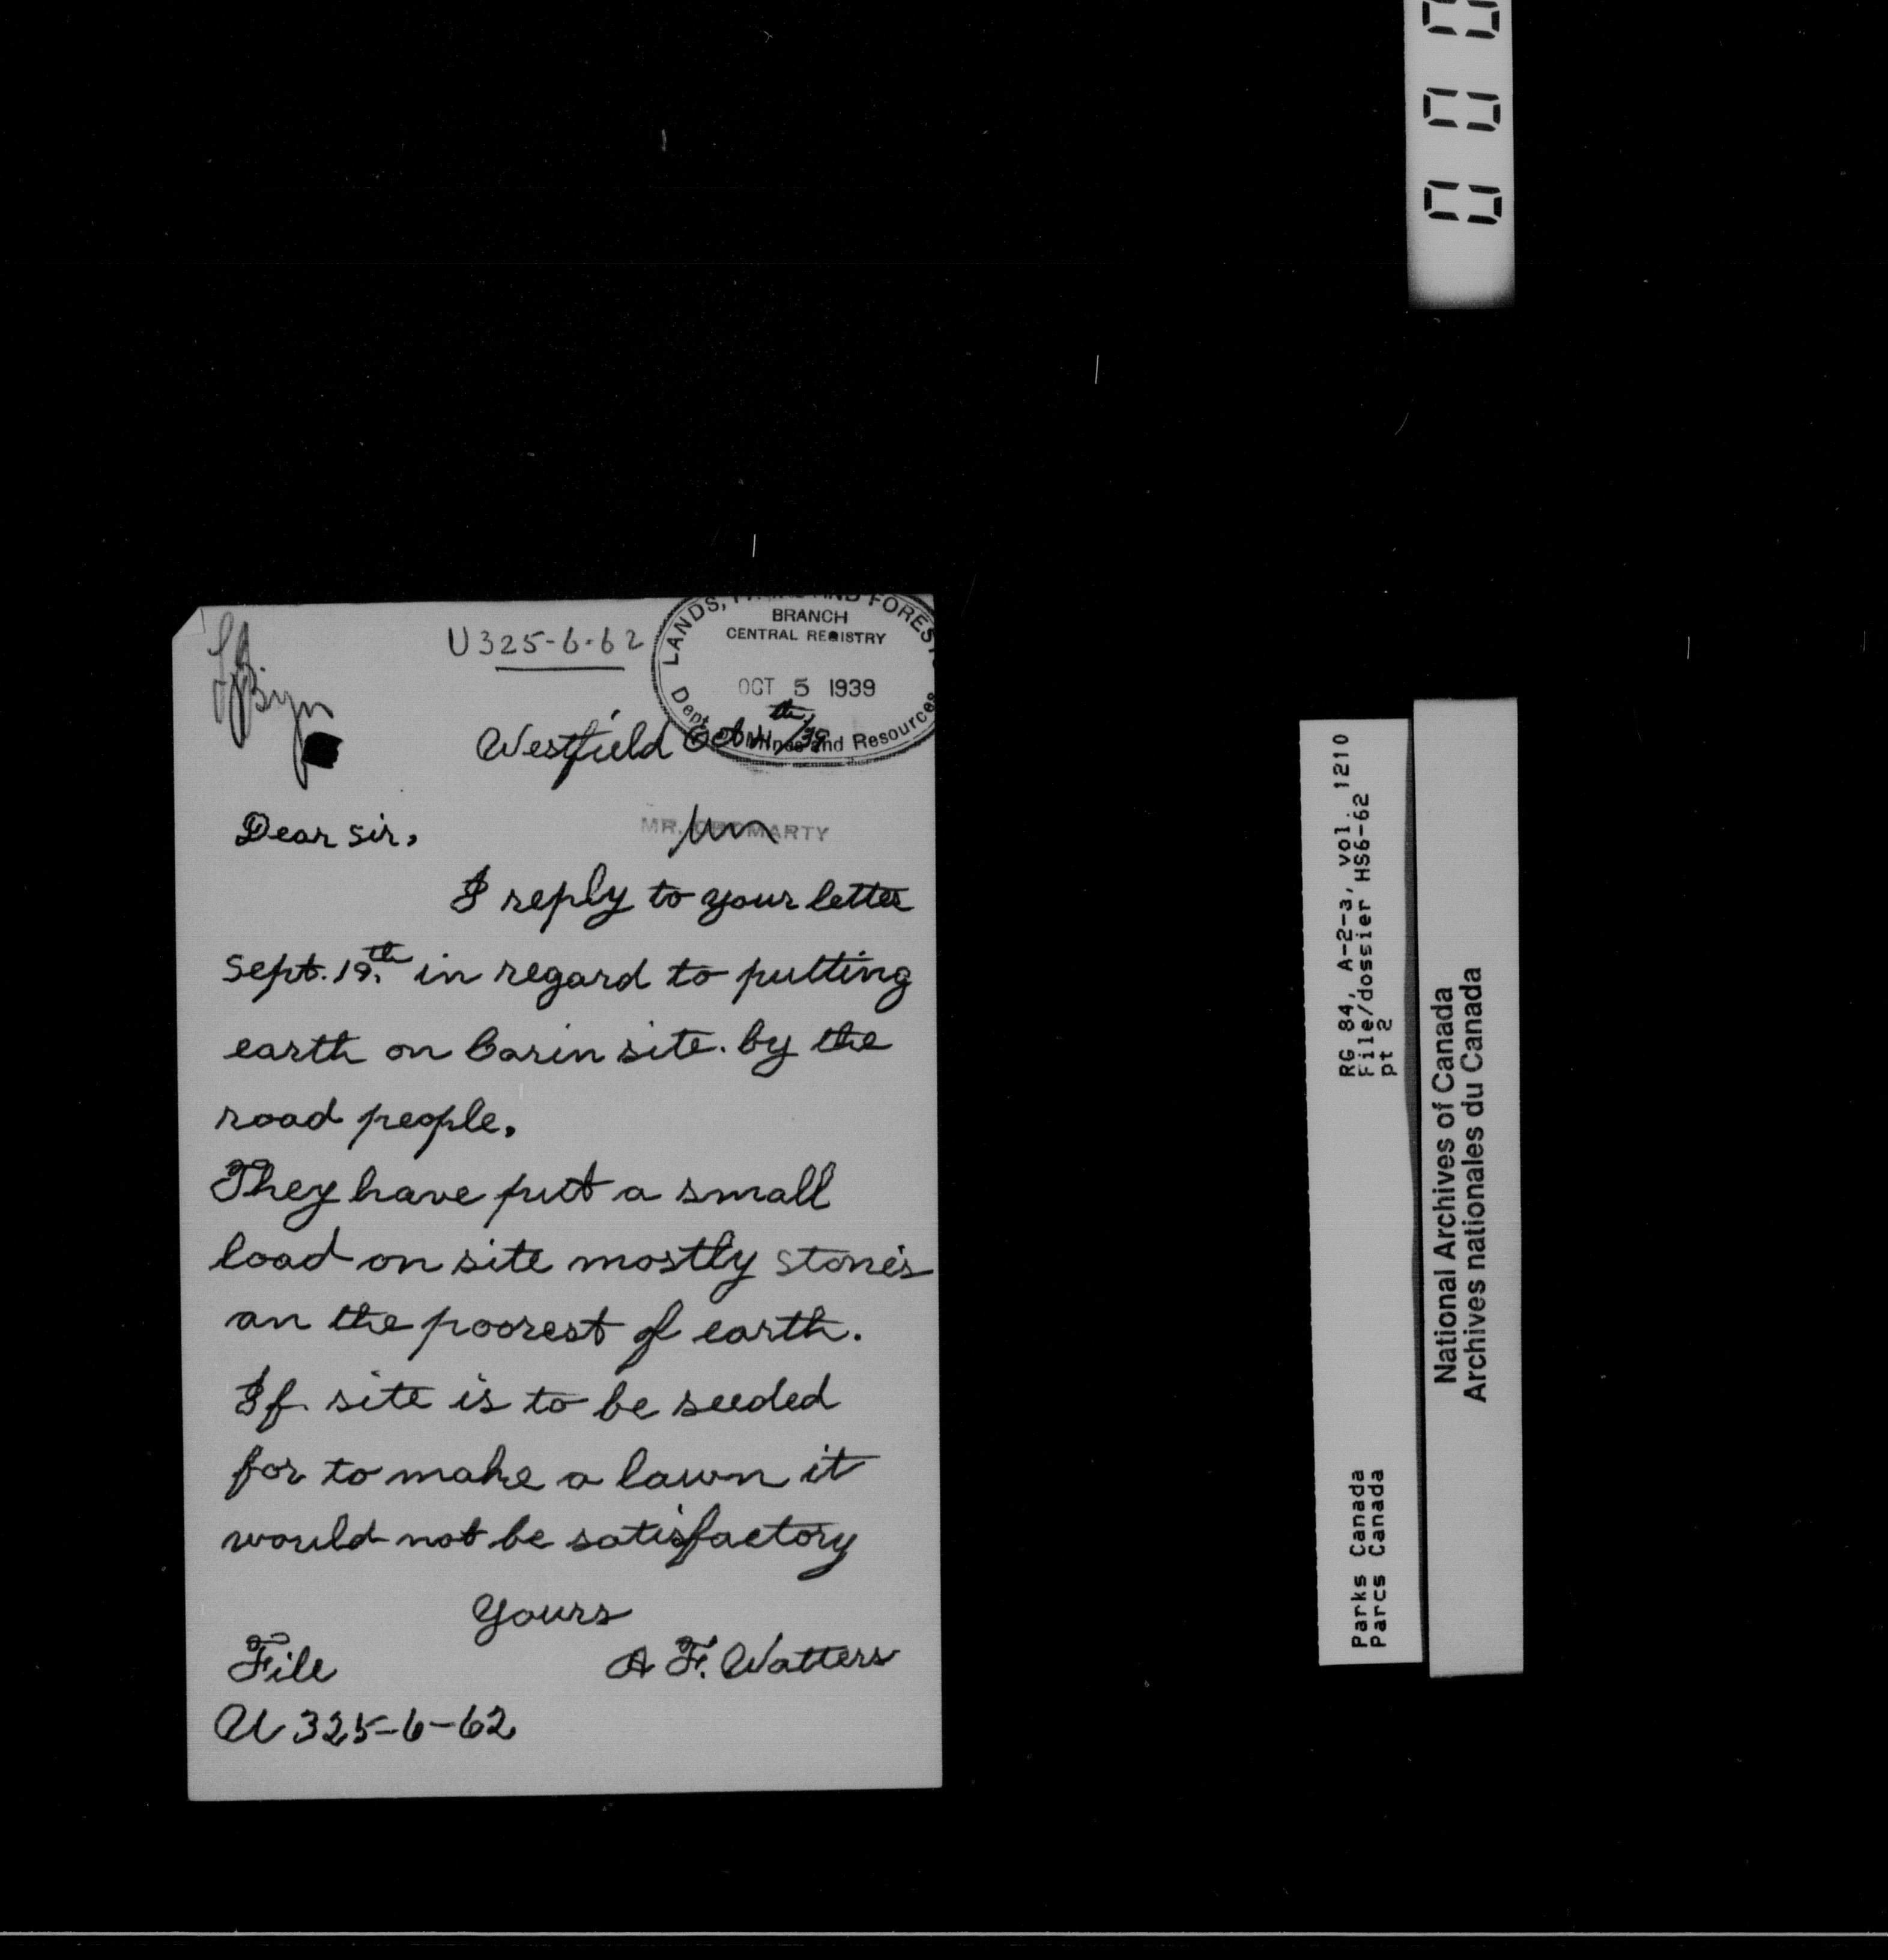 U325-6-62
LANDS, AND FORESTS
BRANCH
CENTRAL REGISTRY
OCT 5 1939
Dept. Mines and Resources
Westfield Oct 4th/39
Dear sir,
MR. CROMARTY
I reply to your letter
sept. 19th in regard to putting
earth on Carin site. by the
road people.
They have put a small
load on site mostly stone's
an the poorest of earth.
If site is to be seeded
for to make a lawn it
would not be satisfactory
Yours
A F. Watters
File
U 325-6-62
RG 84, A-2-3, vol. 1210
File/dossier HS6-62
pt 2
Parks Canada
Parcs Canada
National Archives of Canada
Archives nationales du Canada